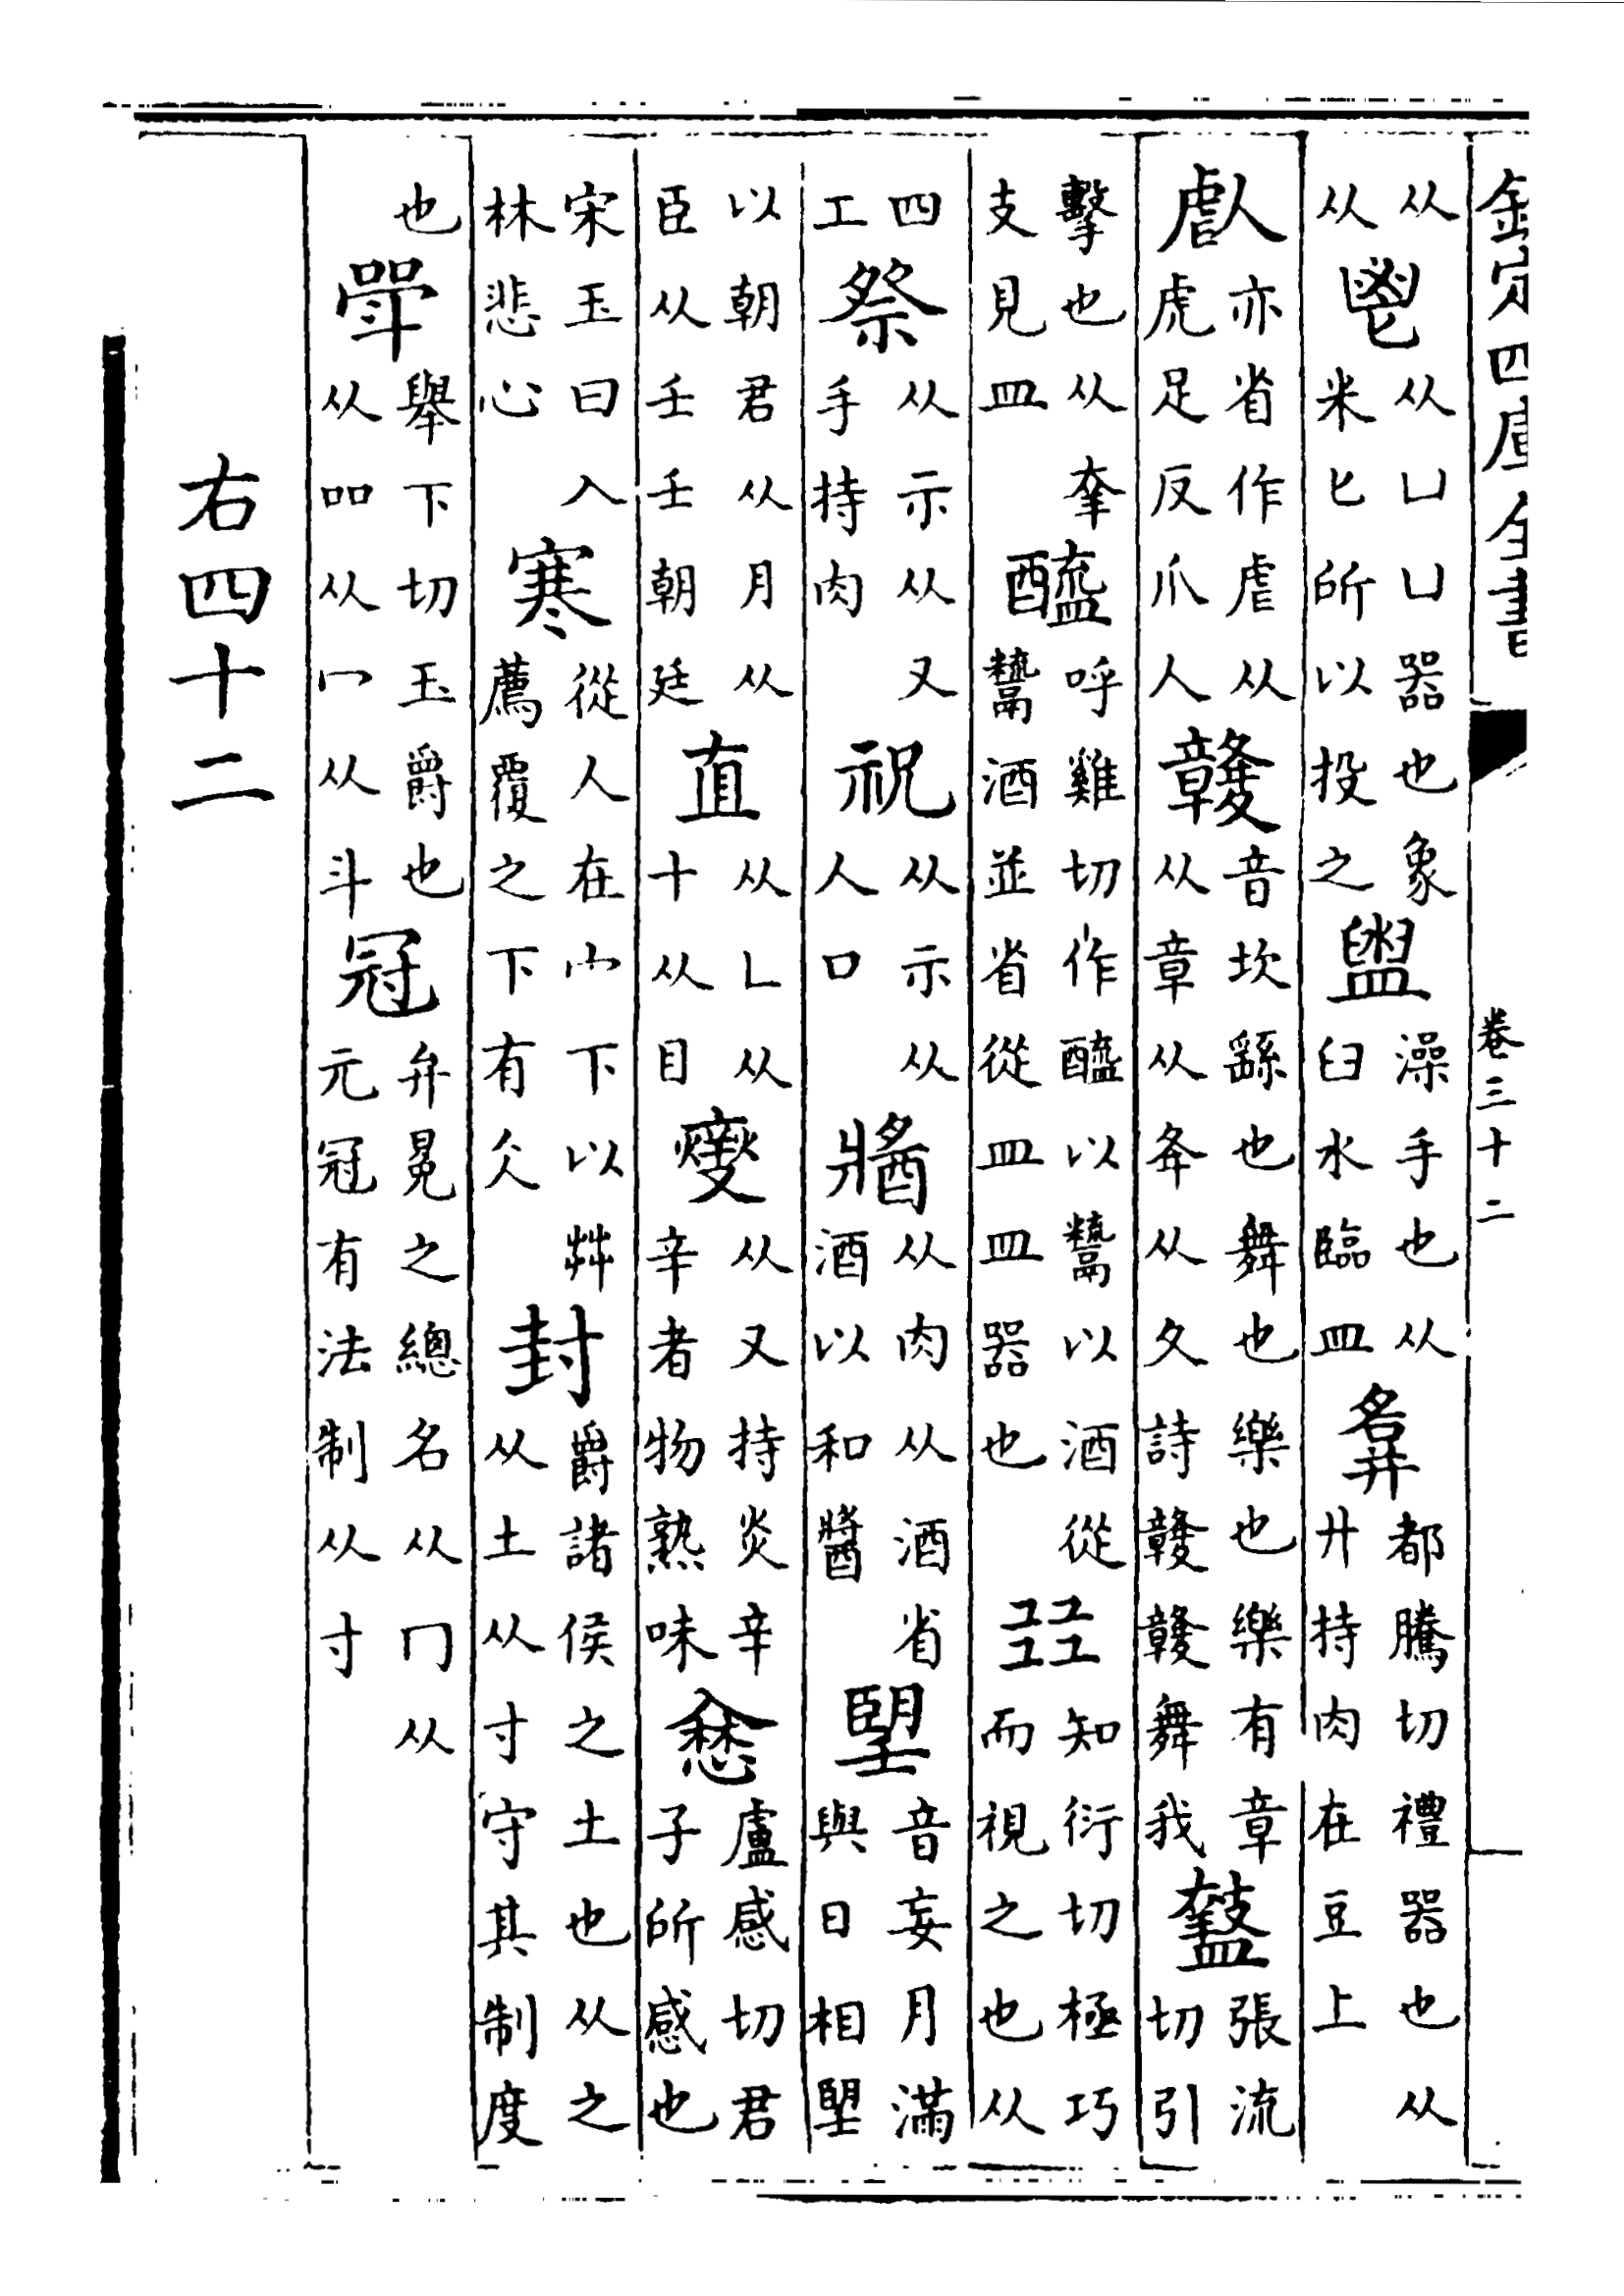 欽定四庫全書
卷三十二
从从鬯从凵凵器也象米匕所以投之盥澡手也从臼水臨皿都騰切禮器也从廾持肉在豆上
亦省作虐从虎足反爪人竷音坎繇也舞也樂也樂有章从章从夅从夊詩竷竷舞我盩張流切引
擊也从㚔支見皿醯呼雞切作醯以鬻以酒從鬻酒並省從皿皿器也㠭知衍切極巧而視之也从
四工祭从示从又手持肉祝从示从人口醬从肉从酒省酒以和醬朢音妄月滿與日相朢
以朝君从月从臣从壬壬朝廷直从乚从十从目燮从又持炎辛辛者物熟味盧感切君子所感也
宋玉曰入林悲心寒從人在宀下以艸薦覆之下有仌封爵諸侯之土也从之从土从寸守其制度
也斝舉下切玉爵也从吅从冖从斗冠弁冕之總名从冂从元冠有法制从寸
右四十二